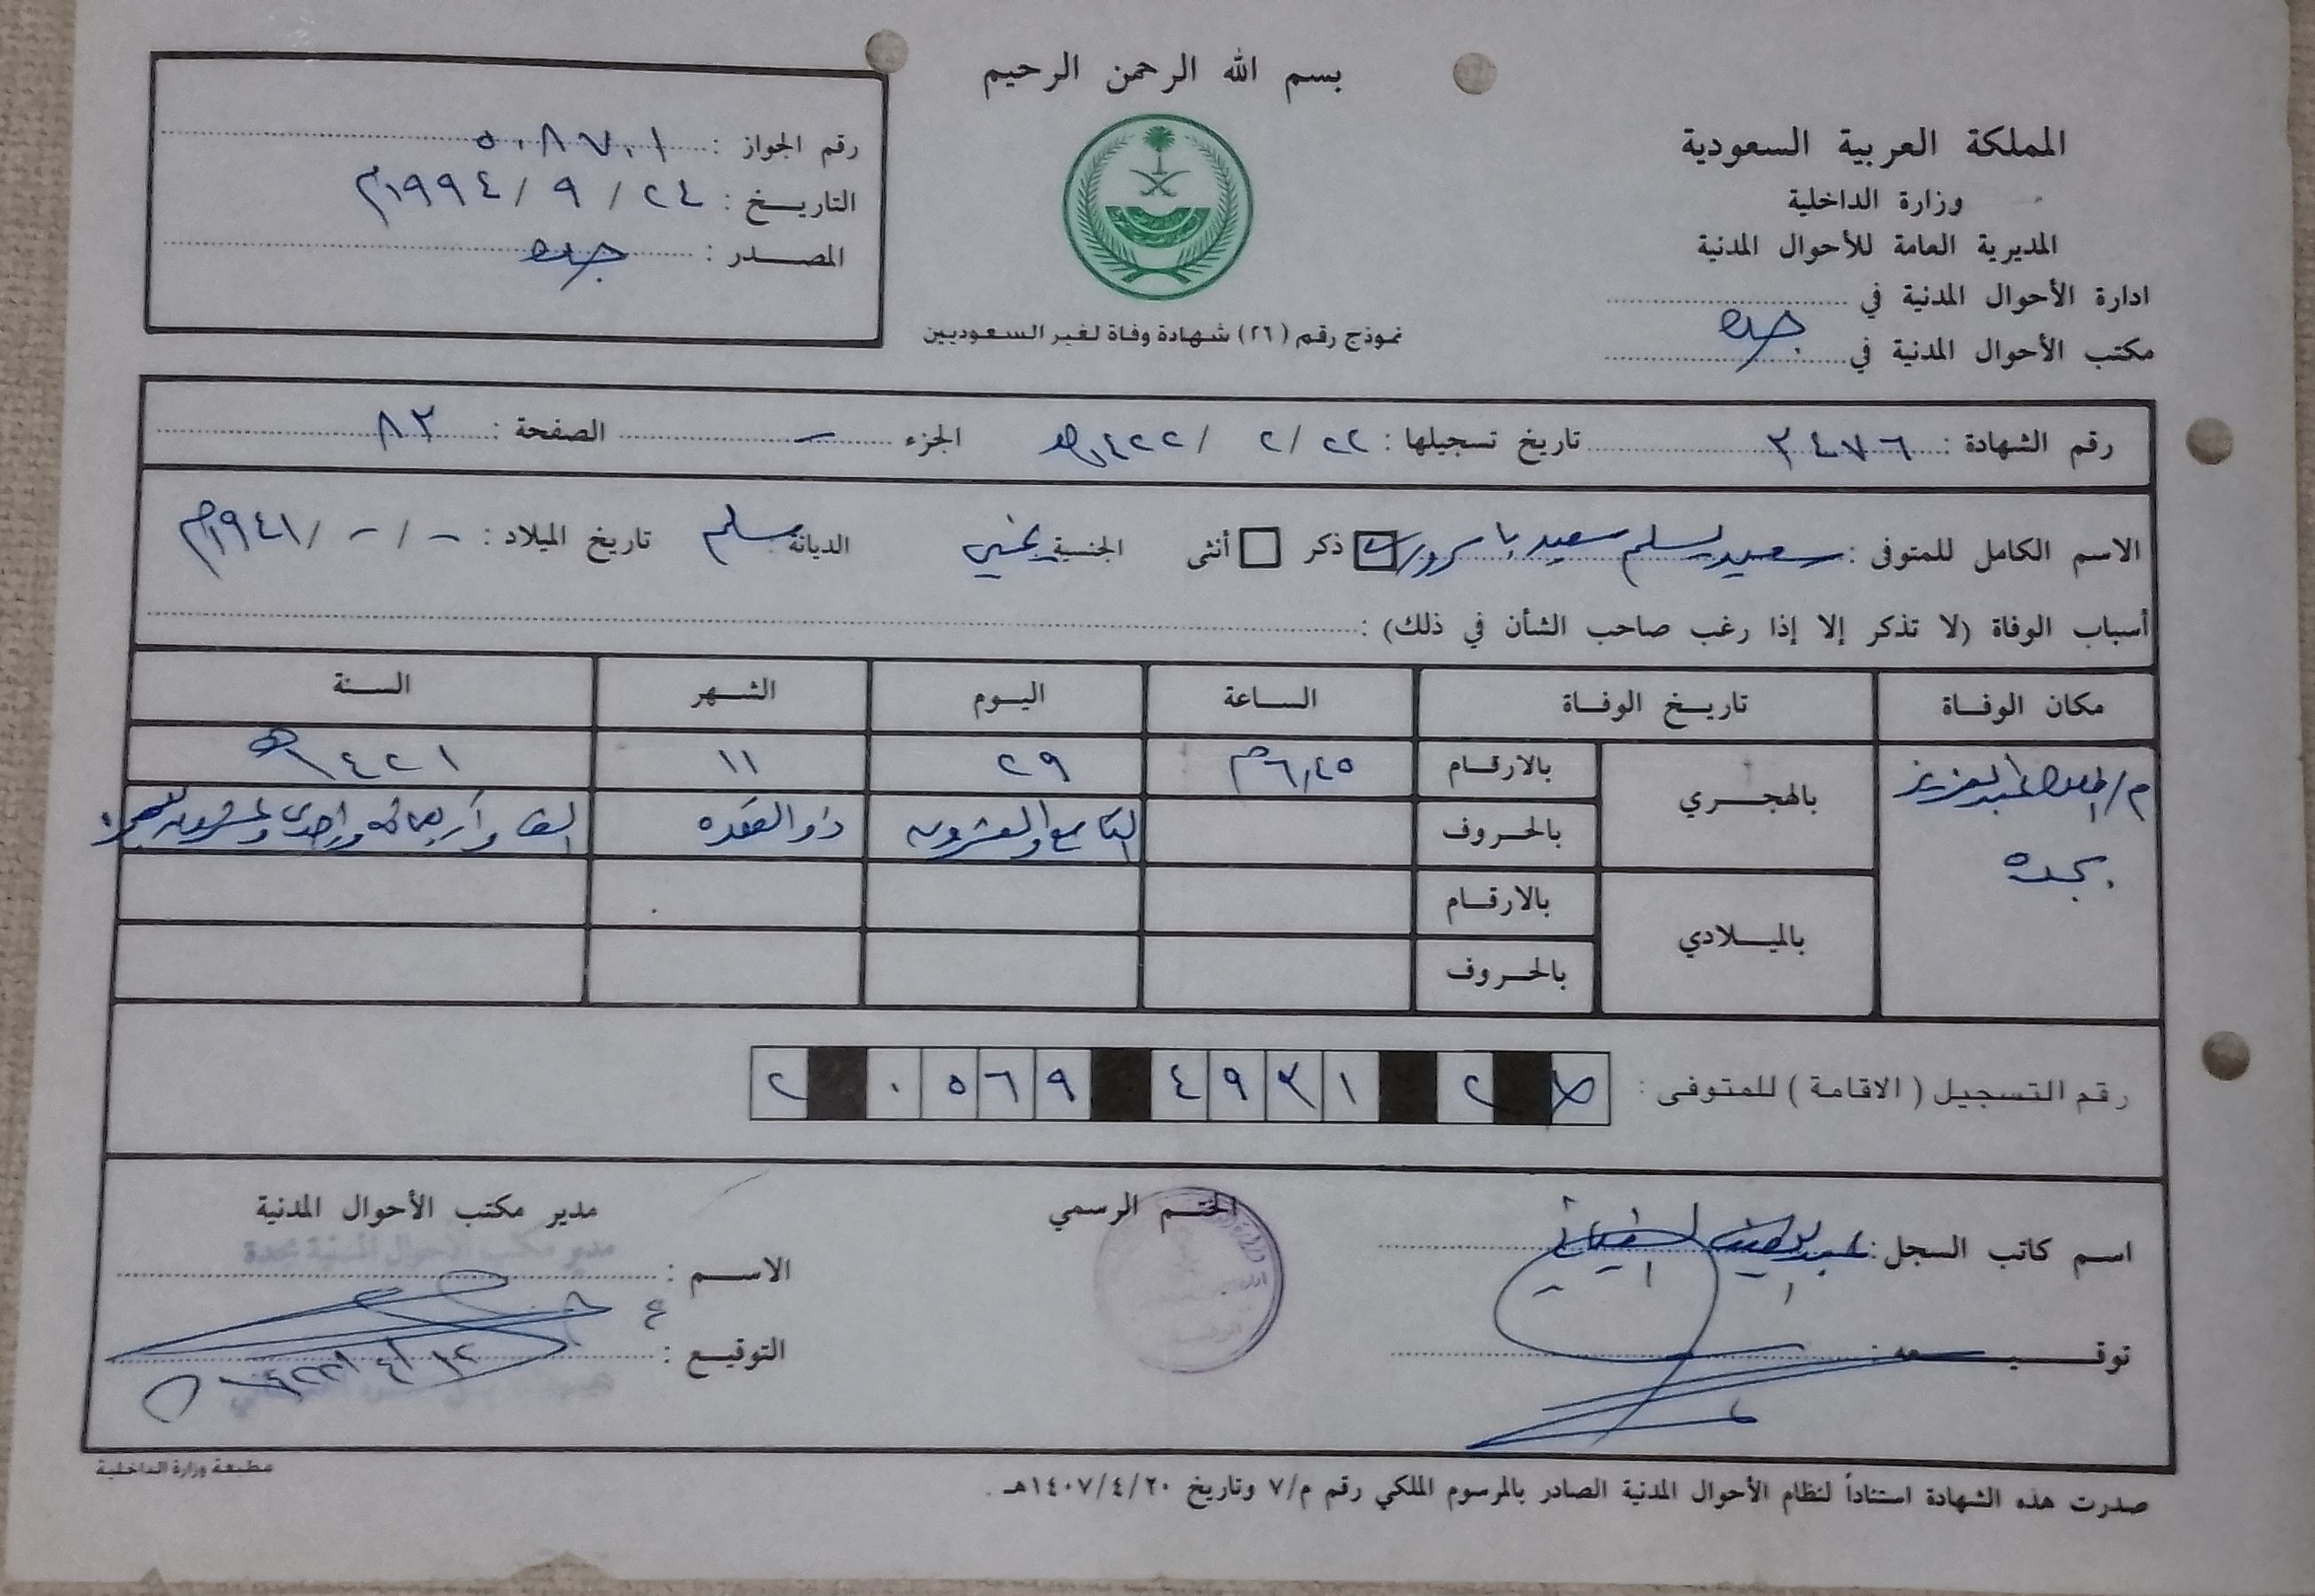 بسم الله الرحمن الرحيم
المملكة العربية السعودية
وزارة الداخلية
المديرية العامة للأحوال المدنية
ادارة الأحوال المدنية في
مكتب الأحوال المدنية في جده
نموذج رقم (٢٦) شهادة وفاة لغير السعوديين
رقم الجواز : ٥٠٨٧٠١
التاريخ : ٢٤ / ٩ / ١٩٩٤م
المصدر : جده
رقم الشهادة : ٣٤٧٦ تاريخ تسجيلها : ٢٢ / ٢ / ١٤٢٢هـ الجزء – الصفحة : ٨٢
الاسم الكامل للمتوفى : سعيد يسلم سعيد باسرور ذكر أنثى الجنسية يمني الديانة مسلم تاريخ الميلاد : - / - / ١٩٤١م
أسباب الوفاة (لا تذكر إلا إذا رغب صاحب الشأن في ذلك) :
مكان الوفاة تاريخ الوفاة الساعة اليوم الشهر السنة
م/الملك عبدالعزيز بالهجري بالارقام ٦,٤٥م ٢٩ ١١ ١٤٢١هـ
بجده بالحروف التاسع والعشرون ذو القعده الف وأربعمائه وإحدى وعشرون
بالميلادي بالارقام
بالحروف
رقم التسجيل (الاقامة) للمتوفى : ط ٢ ١٣٩٤ ٩٦٥٠ ٢
اسم كاتب السجل :
توقيعه :
الختم الرسمي
مدير مكتب الأحوال المدنية
مدير مكتب الأحوال المدنية بجدة
الاسم :
التوقيع :
صدرت هذه الشهادة استناداً لنظام الأحوال المدنية الصادر بالمرسوم الملكي رقم م/٧ وتاريخ ١٤٠٧/٤/٢٠هـ .
مطبعة وزارة الداخلية